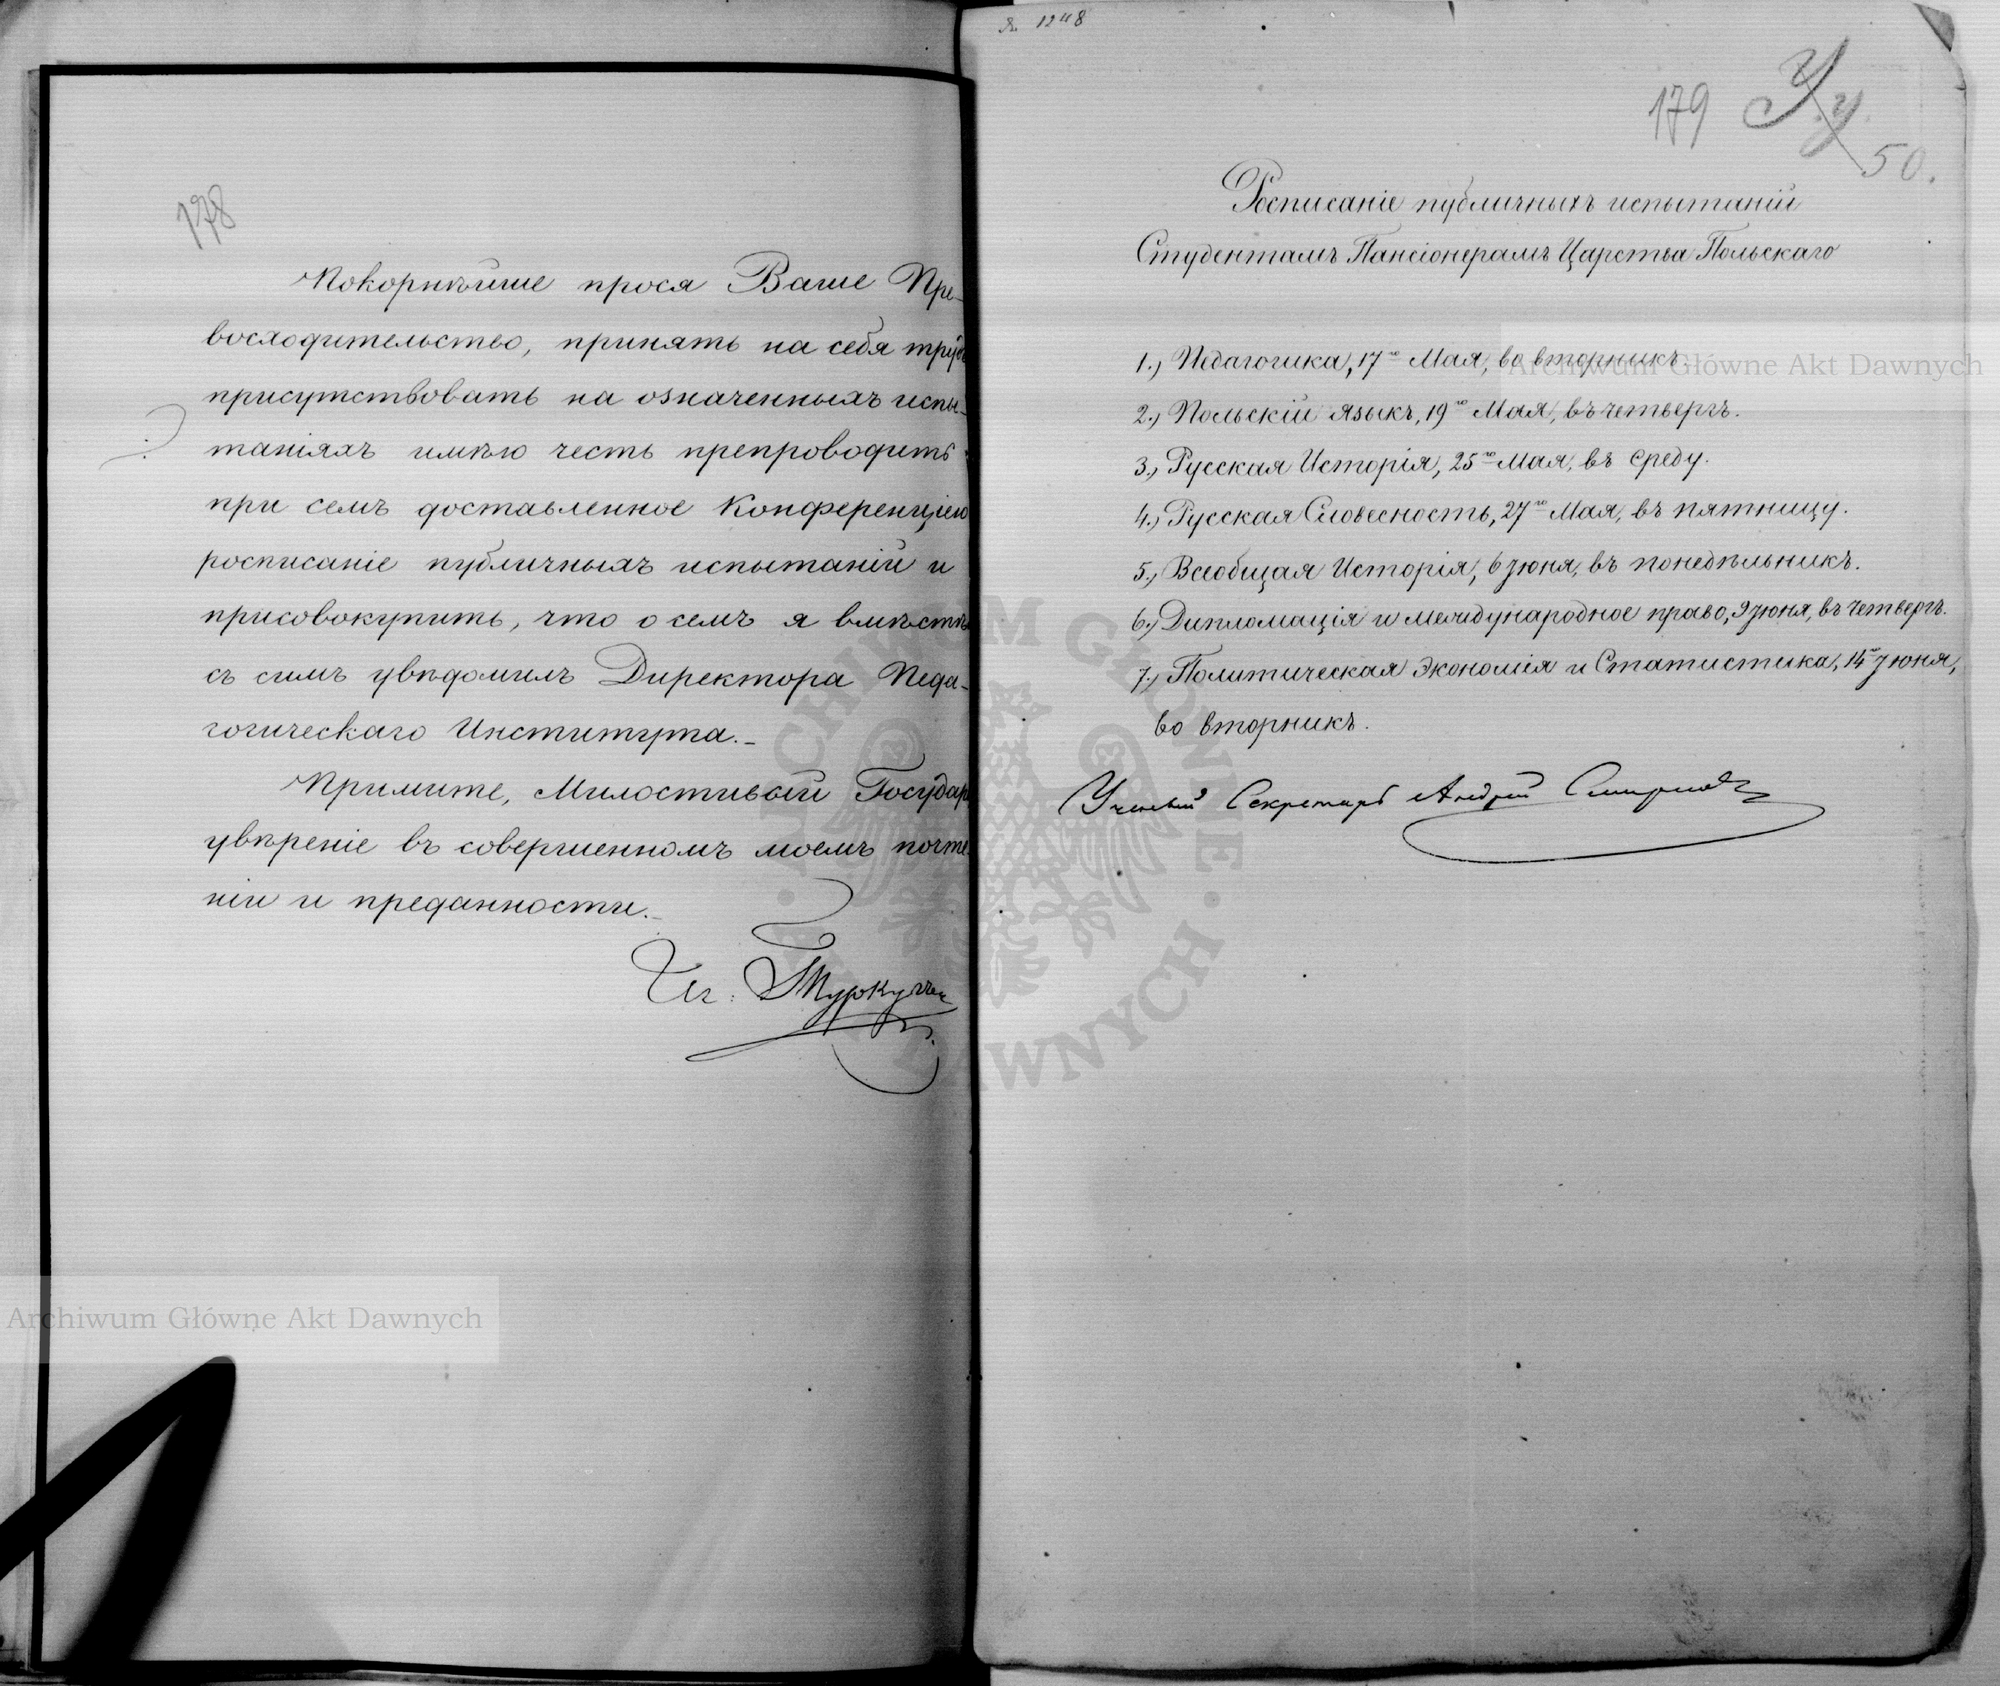 178
Покорнѣйше прося Ваше Пре-
восходительство, принять на себя трудъ
присутствовать на означенныхъ испы-
таніяхъ имѣю честь препроводить
при семъ доставленное Конференціею
росписаніе публичныхъ испытаній и
присовокупить, что о семъ я вмѣстѣ
съ симъ увѣдомилъ Директора Педа-
гогическаго Института.
Примите, Милостивый Государь
увѣреніе въ совершенномъ моемъ почте-
ніи и преданности.
Иг. Туркулъ
1248
179
50.
Росписаніе публичныхъ испытаній
Студентамъ Пансіонерамъ Царства Польскаго
1.) Педагогика, 17го Мая, во вторникъ.
2.) Польскій языкъ, 19го Мая, въ четвергъ.
3.) Русская Исторія, 25го Мая, въ среду.
4.) Русская Словесность, 27го Мая, въ пятницу.
5.) Всеобщая Исторія, 6 Іюня, въ понедѣльникъ.
6.) Дипломація и международное право, 9 Іюня, въ четвергъ.
7.) Политическая Экономія и Статистика, 14го Іюня,
во вторникъ.
Ученый Секретарь Андрей Смирновъ
Archiwum Główne Akt Dawnych
Archiwum Główne Akt Dawnych
ARCHIWUM GŁÓWNE AKT DAWNYCH